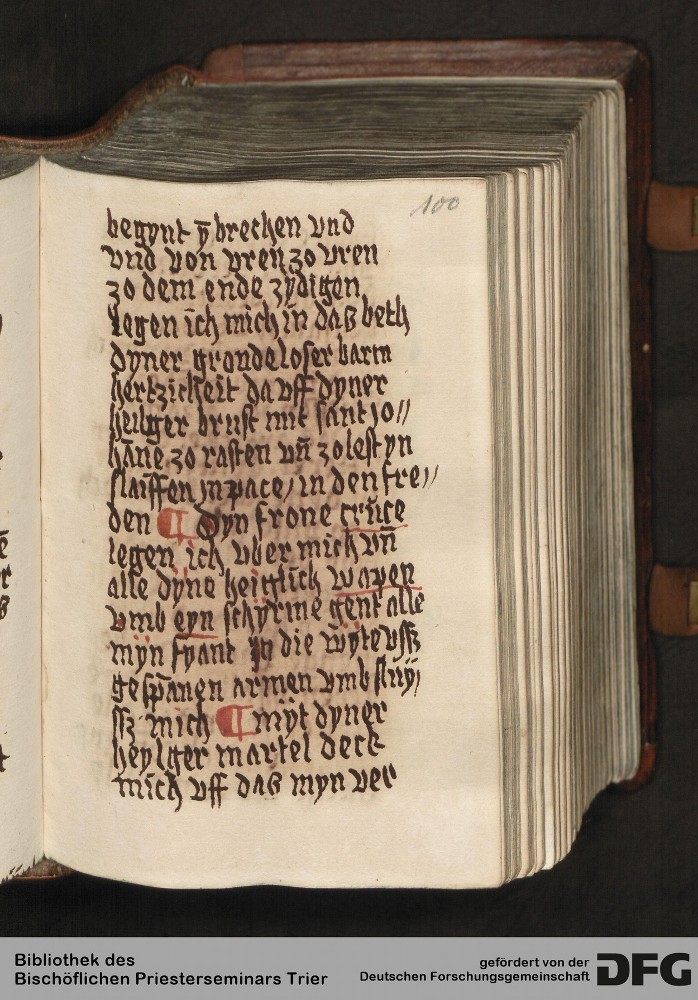 100
begynt ÿ brechen vnd
vnd von vren zo vren
zo dem ende zydigen
Legen ich mich in daß beth
dyner grondeloser barm
hertzicheit da vff dyner
heilger brust mit sant jo//
hāne zo rasten vn̄ zo lestyn
slaiffen jn pace/ in den fre//
den ¶ Dyn frone crůce
legen ich vber mich vn̄
alle dyne heiglich wapen
vmb eyn schyrme gent alle
myn fyant jn die wyte vsß
gespānen armen vmb sluÿ/
sß mich ¶ myt dyner
heylger martel deck
mich vff daß myn ver
Bibliothek des
Bischöflichen Priesterseminars Trier
gefördert von der
Deutschen Forschungsgemeinschaft DFG